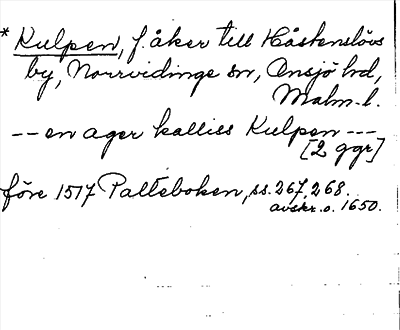 * Kulpen, f. åker till Håstenslövs
by, Norrvidinge sn, Onsjö hd,
Malm. l.
-- en ager kalliss Kulpen ---
[2 ggr]
före 1517 Palteboken, ss. 267, 268.
avskr. o. 1650.